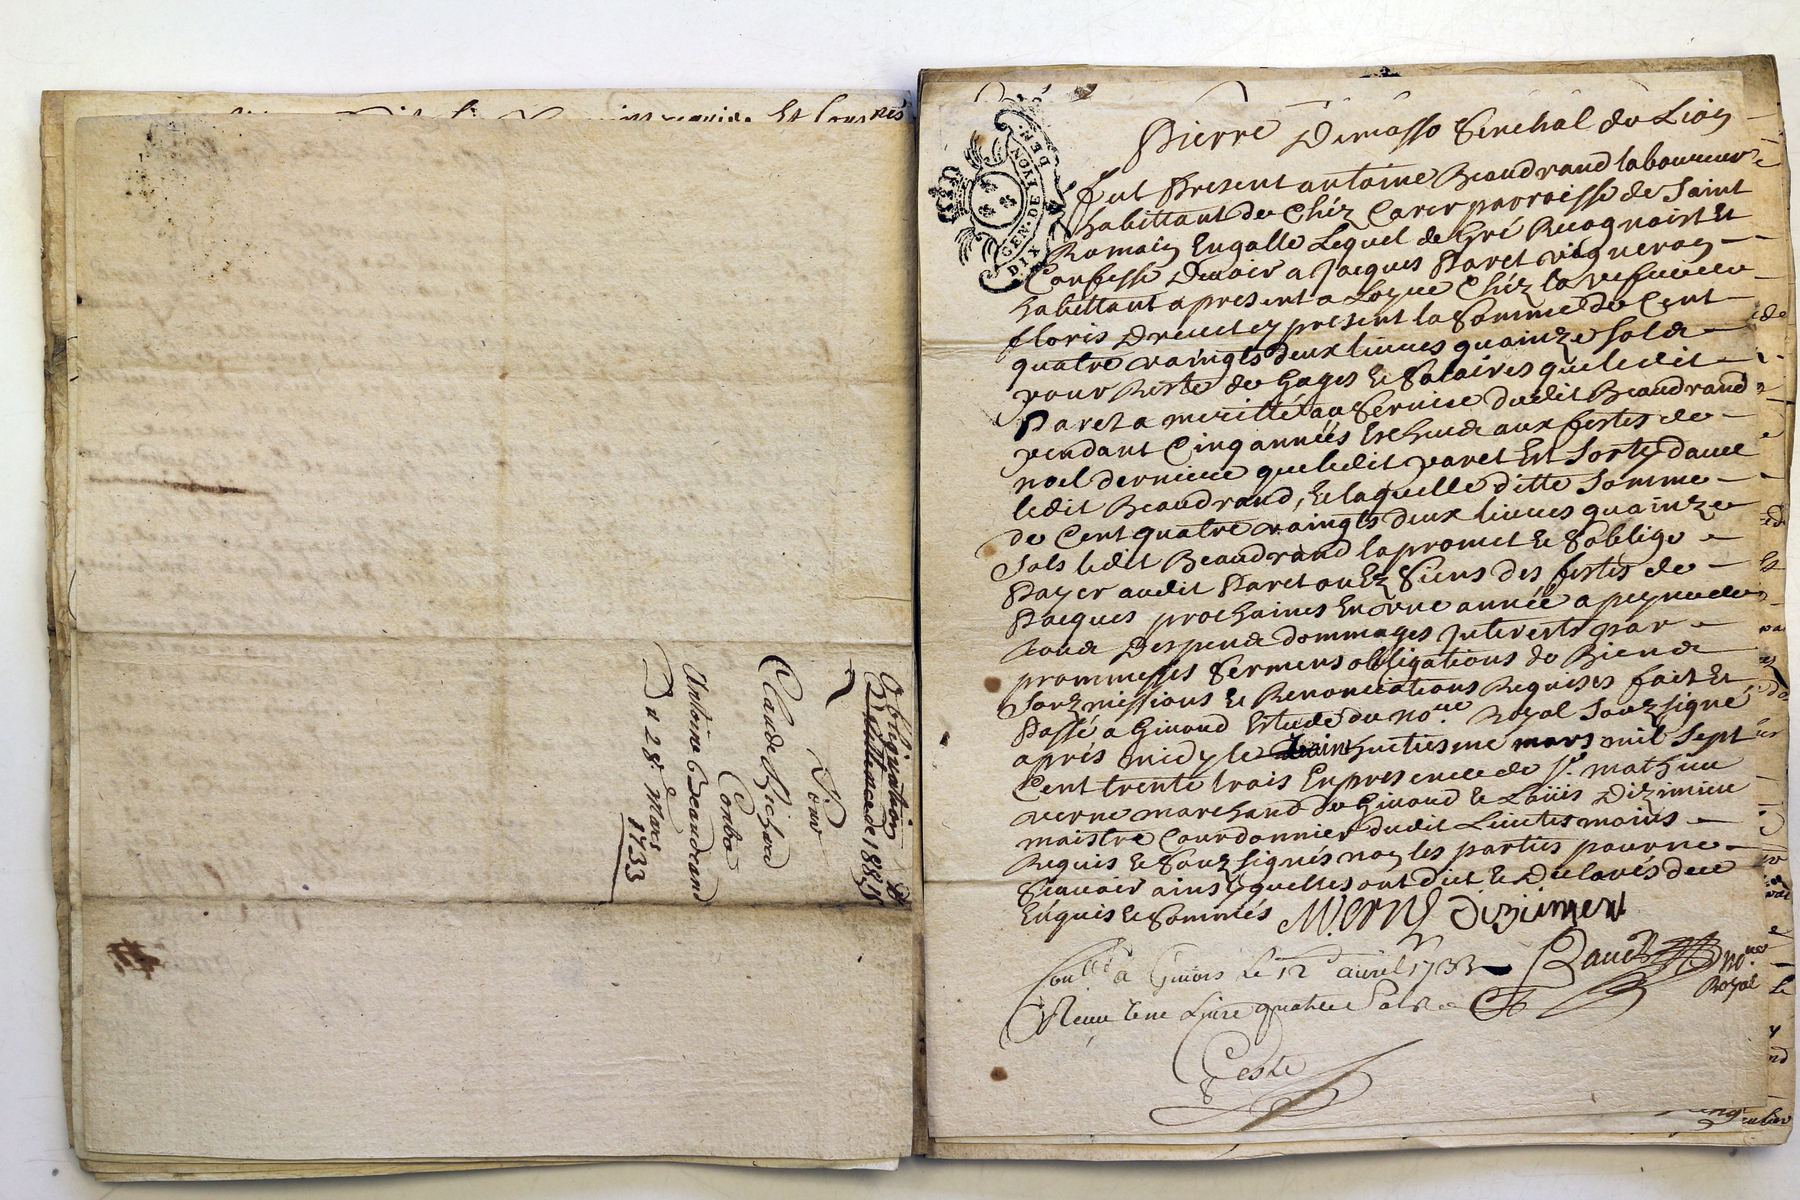 Obligation
de 188
Pour
Claude Richard
Contre
Antoine Beaudrand
Du 28e Mars
1733
GEN. DE LYON
DIX DEN.
Pierre Demasso Senechal de Lion
fut Present antoine Beaudrand laboureur
habittant de Chéz Carer parroisse de Saint
Romain Engalle Lequel de Gré Recognoist Et
Confesse Devoir a Jacques Paret vigneron
habittant apresent a Loyre Chéz la
floris Present la Somme de Cent
quatre vaingts deux livres quainze Sols
pour Reste de Gages Et Salaires que ledit
Paret a merittés au Service dudit Beaudrand
pendant Cinq années Escheue aux festes de
noel derniere que ledit paret Est Sorty davec
ledit Beaudrand, Et laquelle ditte Somme
de Cent quatre vaingts deux livres quainze
Sols ledit Beaudrand la promet Et Soblige
Payer audit Paret ou Ez Siens Des festes de
Pacques prochaines En une année a peyne de
tous Despens dommages Interests par
prommesses Sermens obligations de Biens
Souzmissions Et Renonciations Requises fait Et
Passé a Givord Estude du Nore. Royal Souzsigné
aprés midy le huctiesme mars mil Sept
Cent trente trois En presence de Sr. mathieu
verne marchand de Givord Et Loüis Dizimieu
maistre Courdonnier dudit Lieu tesmoins
Requis Et Souzsignés non les parties pour ne
Scavoir ainsy quelles ont dict Et Declarés de ce
Enquis Et Sommés M. Verne Dizimieu
Conllé a Givors Le 12e avril 1733
Receu une Livre quatre Sols
nore. Royal
Ceste